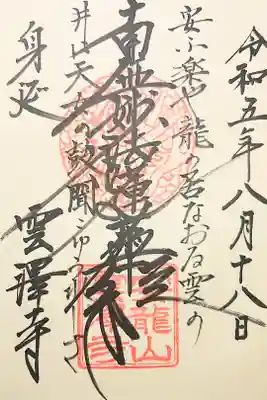 令和五年八月十八日
楽山龍の君なおる雲の
南無妙法蓮華経
井に天女の鼓聞こゆる
身延
雲澤寺
龍山